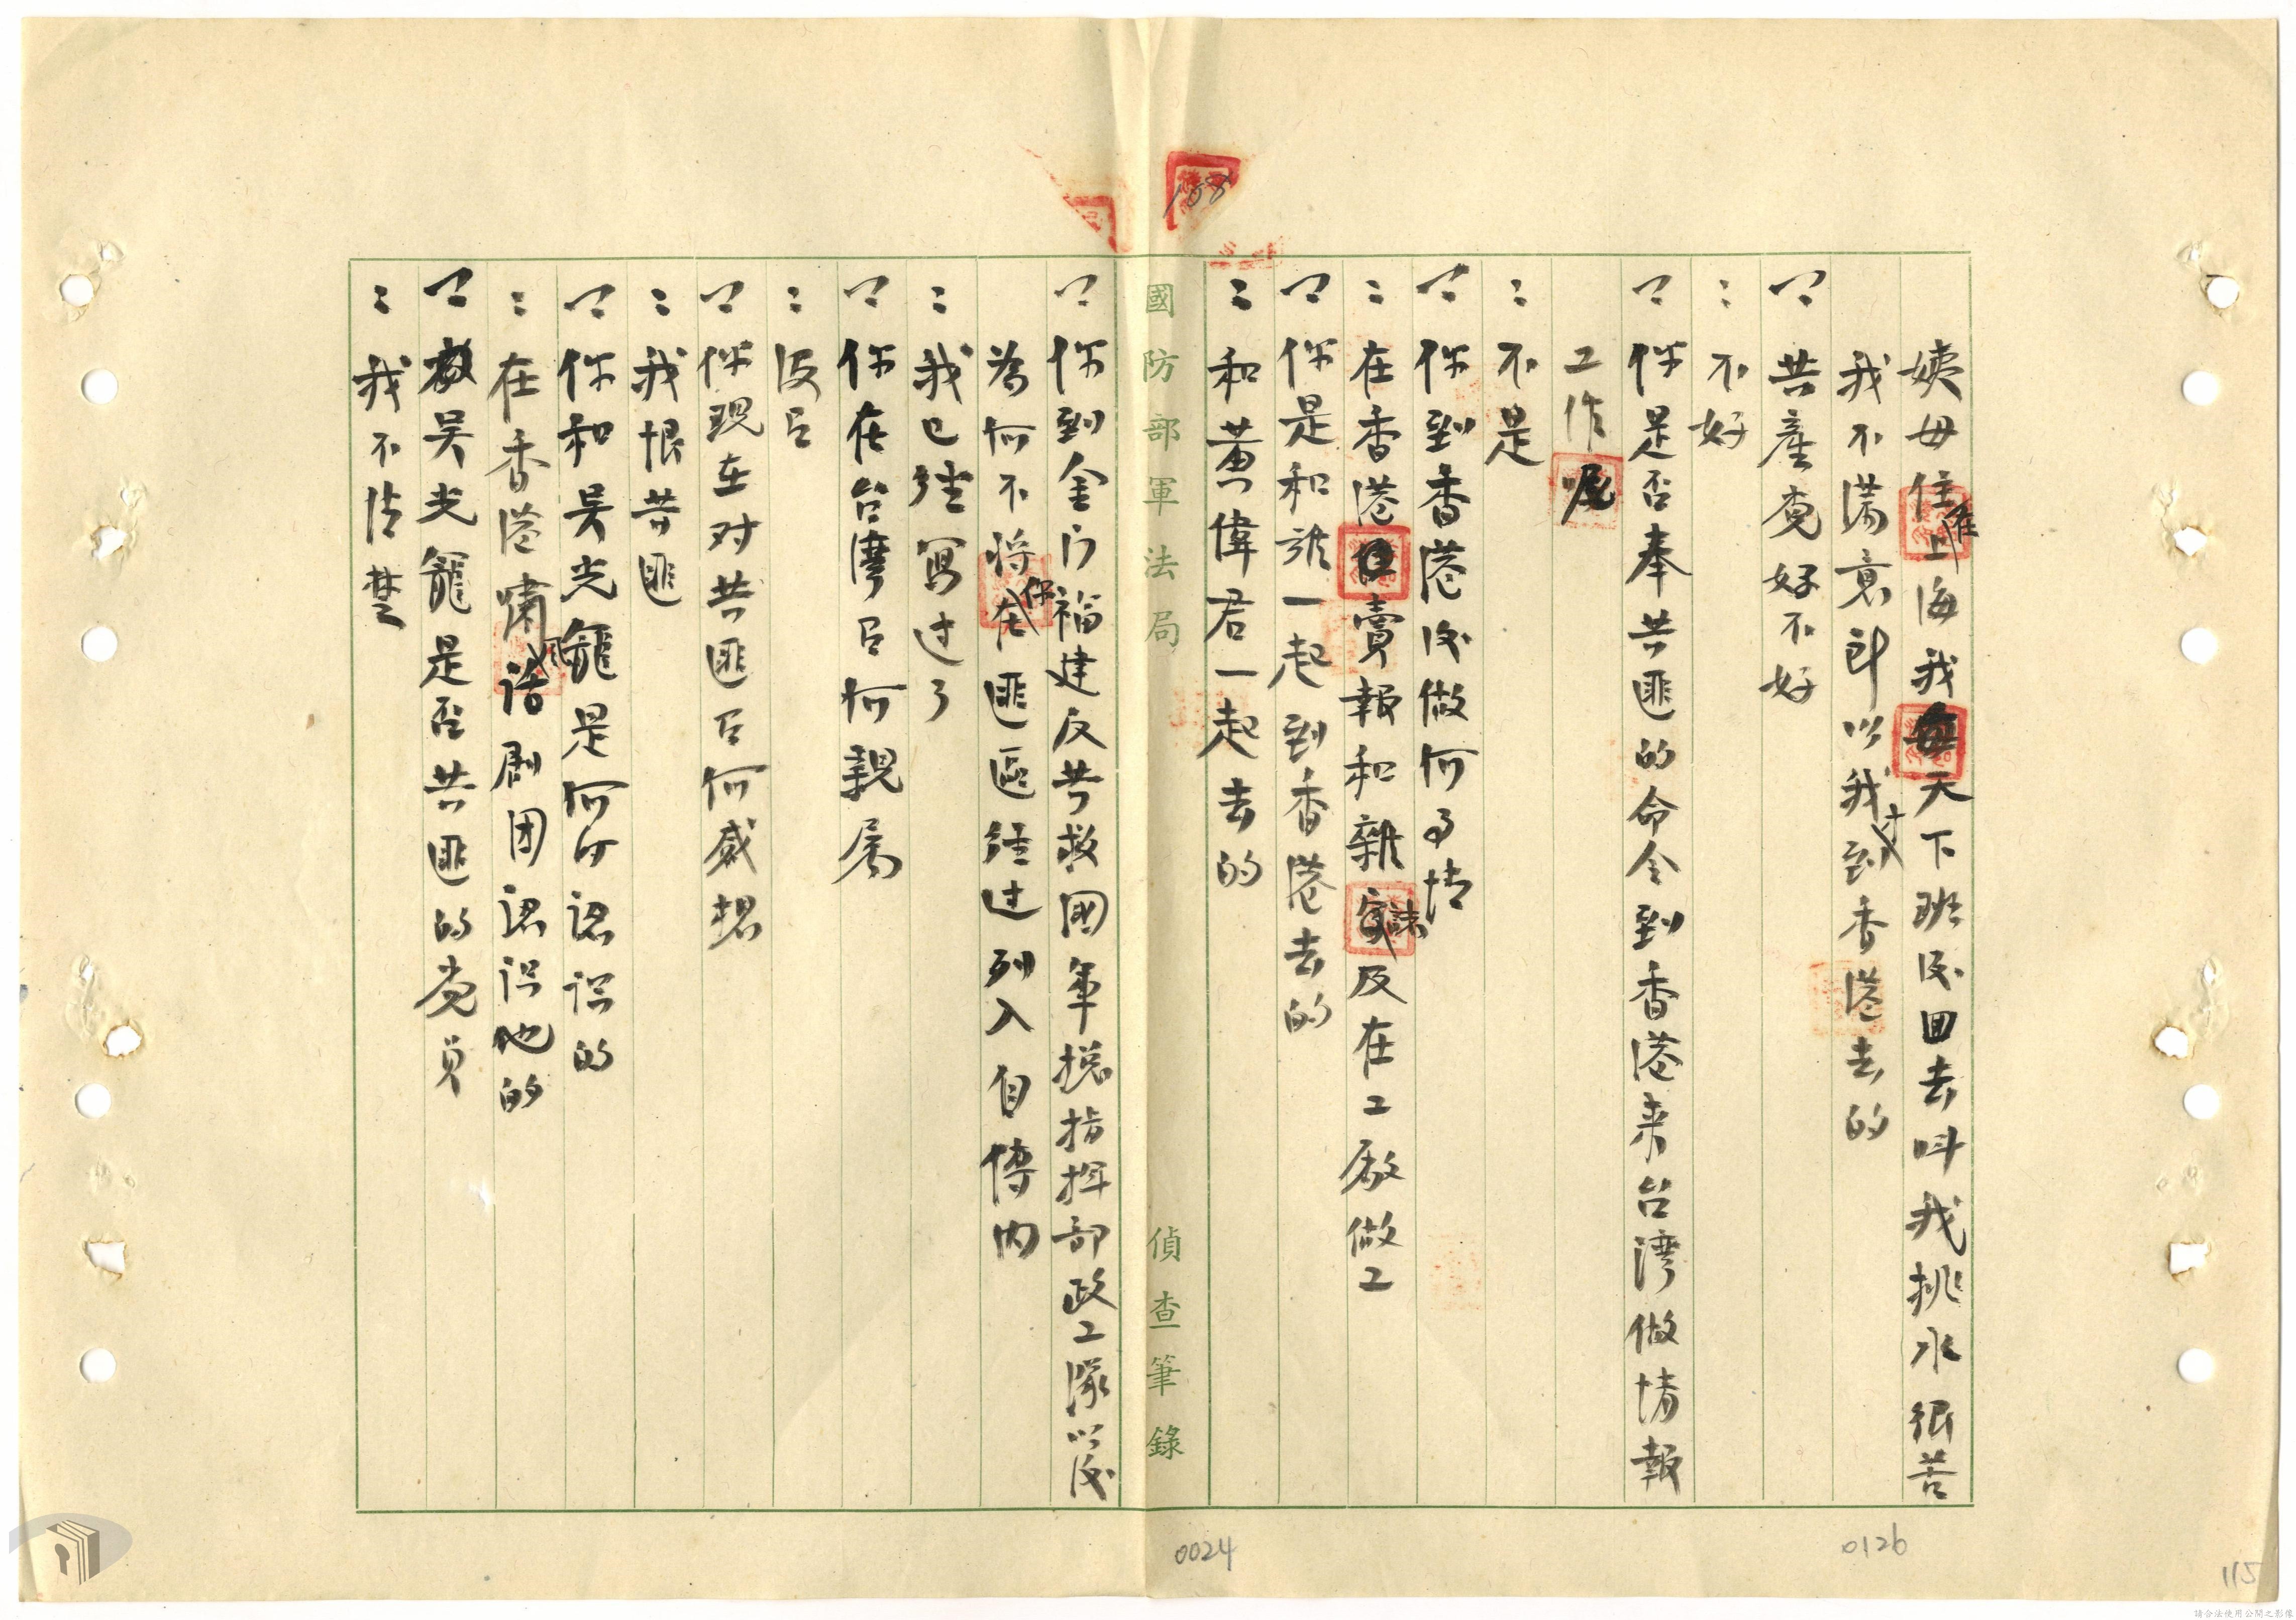 姨母住在上海我每天下班後回去叫我挑水很苦
我不滿意所以我才到香港去的
共產党好不好
不好
你是否奉共匪的命令到香港来台湾做情報
工作
不是
你到香港後做何事情
在香港賣報和雜誌及在工廠做工
你是和誰一起到香港去的
和黄偉君一起去的
國防部軍法局 偵查筆錄
你到金门福建反共救國軍總指揮部政工隊以後
為何不将你匪區经过列入自傳内
我已经寫过了
你在台灣有何親属
没有
你现在对共匪有何感想
我恨共匪
你和吴光寵是何处認识的
在香港劇团認识他的
吴光寵是否共匪的党员
我不清楚
188
0024
0126
115
請合法使用公開之影像